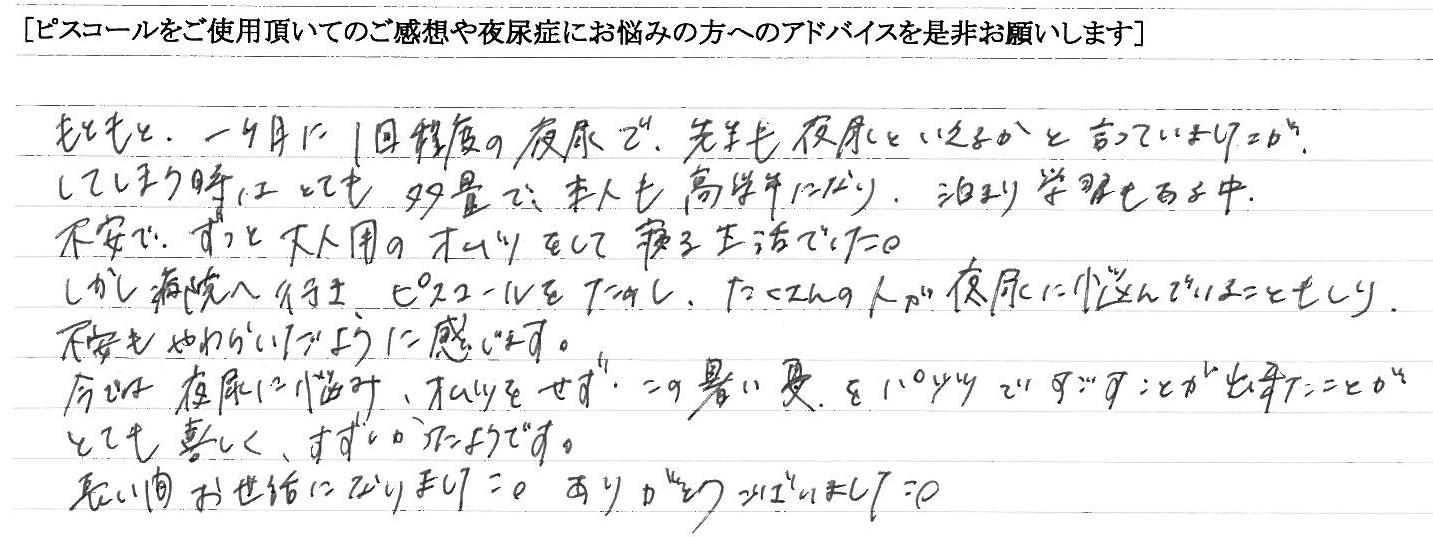 [ピスコールをご使用頂いてのご感想や夜尿症にお悩みの方へのアドバイスを是非お願いします]
もともと、一ヶ月に1回程度の夜尿で、先生も夜尿といえるかと言っていましたが、
してしまう時はとても多量で、本人も高学年になり、泊まり学習もある中、
不安で、ずっと大人用のオムツをして寝る生活でした。
しかし病院へ行き、ピスコールをためし、たくさんの人が夜尿に悩んでいることもしり、
不安もやわらいだように感じます。
今では夜尿に悩み、オムツをせず、この暑い夏をパンツですごすことが出来たことが
とても喜しく、すずしかったようです。
長い間お世話になりました。ありがとうございました。